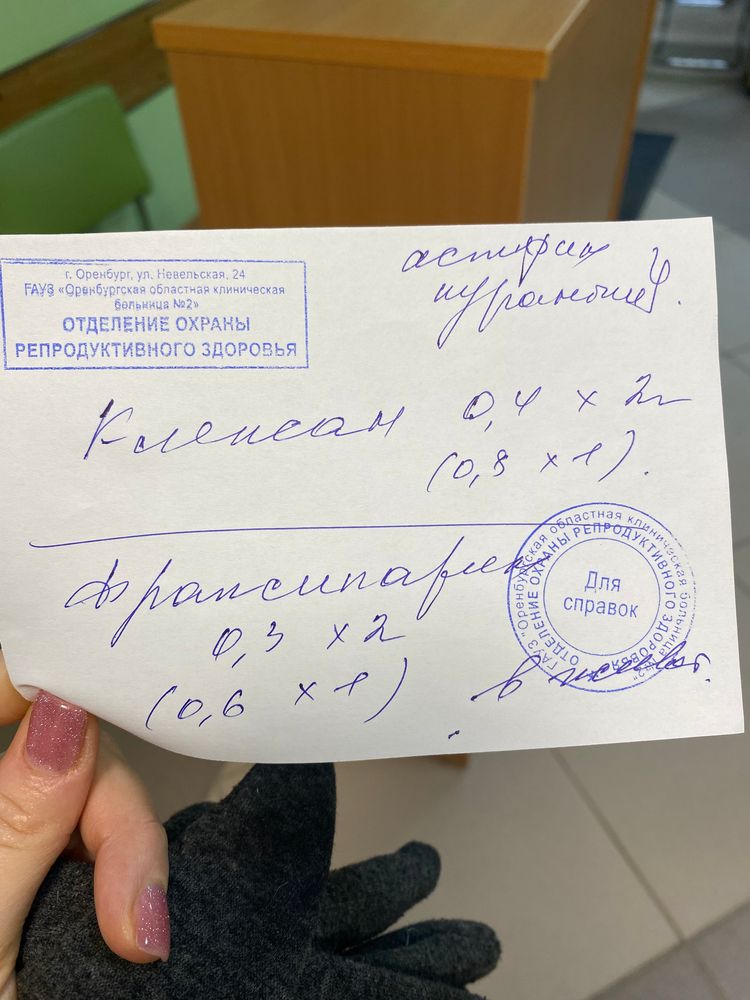 г. Оренбург, ул. Невельская, 24
ГАУЗ «Оренбургская областная клиническая
больница №2»
ОТДЕЛЕНИЕ ОХРАНЫ
РЕПРОДУКТИВНОГО ЗДОРОВЬЯ
аспирин
курантил
Клексан 0,4 х 2
(0,8 х 1).
Фраксипарин
0,3 х 2
(0,6 х 1)
в живот.
ГАУЗ "Оренбургская областная клиническая больница №2"
ОТДЕЛЕНИЕ ОХРАНЫ РЕПРОДУКТИВНОГО ЗДОРОВЬЯ
Для
справок